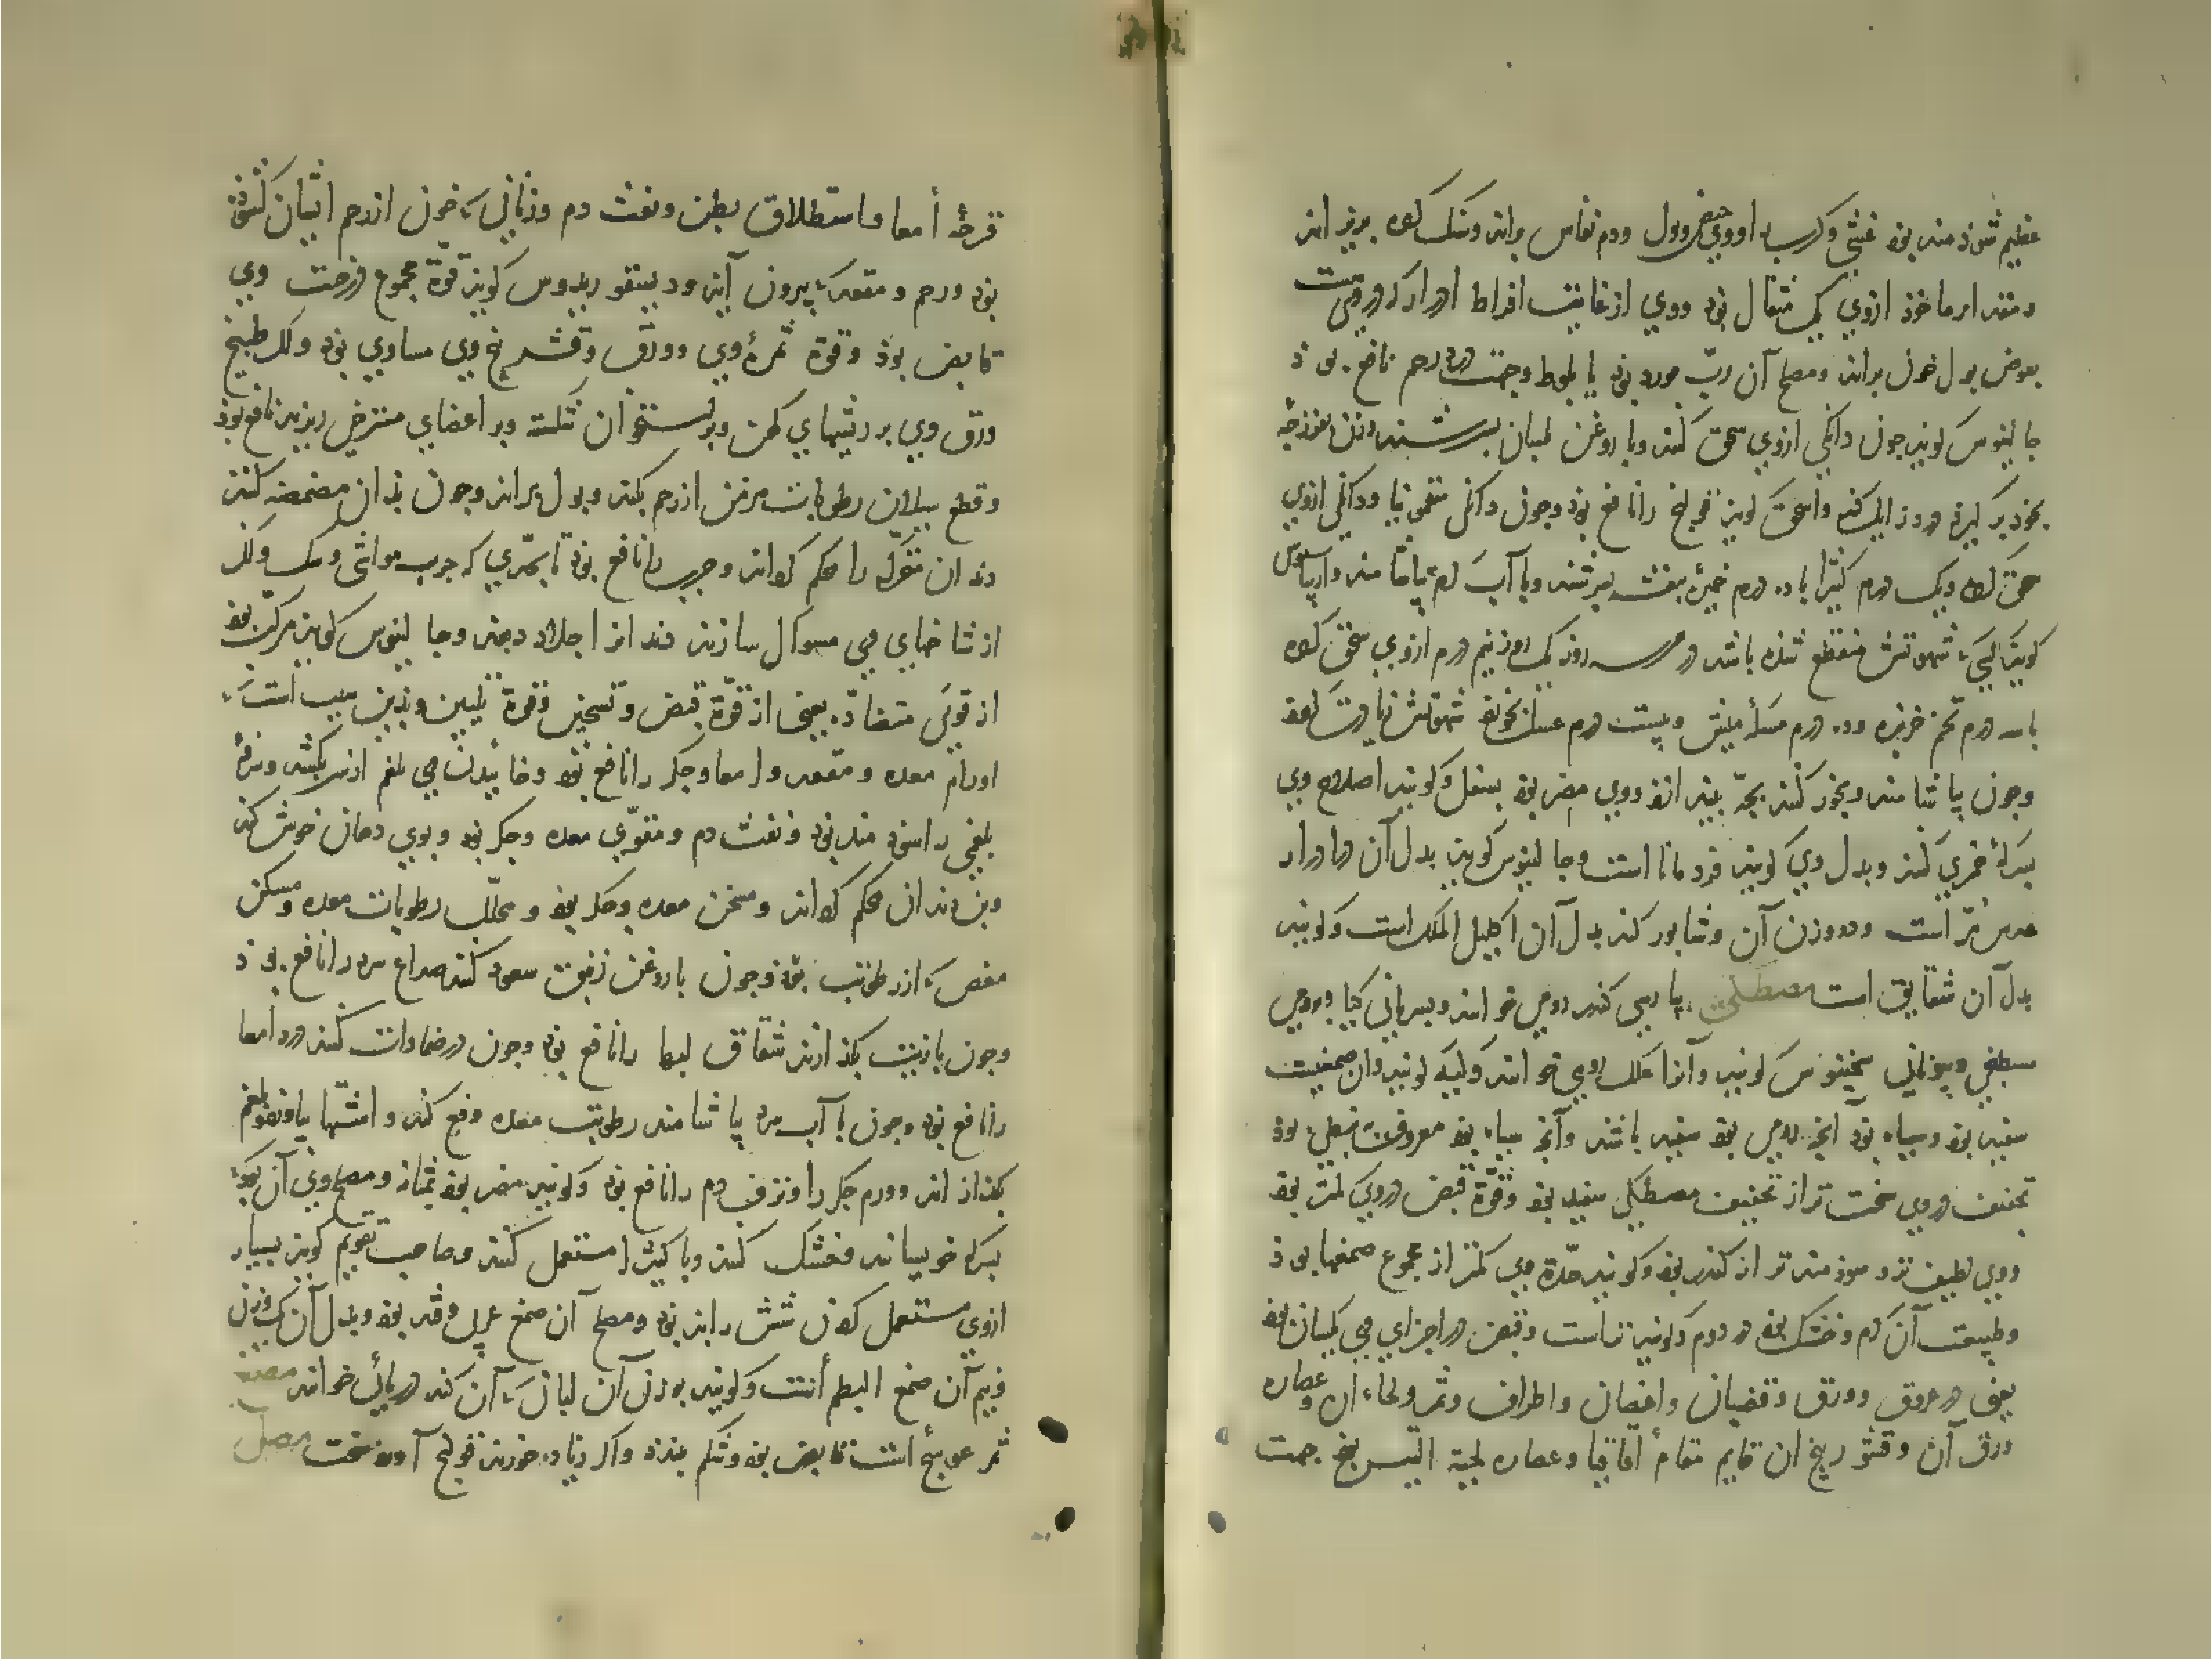 عظیم شوذ مند بوذ غشی و کرب او ووی حیض وبول ودم نفاس براند وسنک کرده بریزاند
ومقدار ماخوذ ازوی یک مثقال بوذ ووی از غایت افراط ادرار که دروی هست
بعوض بول خون براند ومصلح آن رب مورد بوذ یا بلوط وجهت درد رحم نافع بوذ
جالینوس کویذ چون دانکی ازوی سحق کنند وبا روغن لبان بسرشند وزن
بخوذ بر کیرد در روز کند واسحق کویذ قولنج را نافع بوذ وچون دانکی سقمونیا ودانکی ازوی
سحق کرده ویک درم کثیرا با ده درم خمیره بنفشه بسرشند وبا آب کرم بیاشامند
کویذ کسی که شهوتش منقطع شده باشد در هر سه روز یک روز نیم درم ازوی سحق کرده
با سه درم تخم خربزه وده درم مسکه میش وبیست درم عسل بخورد شهوتش زیادت کردد
وچون بیاشامند وبخوذ کنند بچه بیندازد ووی مضر بوذ بسفل وکویند اصلاح وی
بسرکه خمری کنند وبدل وی کویند قردمانا است وجالینوس کویذ بدل آن
است ودو وزن آن وشابور کند بدل آن اکلیل الملک است وکویند
بدل آن شقایق است مصطکی بپارسی کندر رومی خوانند وبسریانی کیا ورومی
مسطیخی وبیونانی سخینوس کویند وآنرا علک رومی خوانند وکیه کویند وآن صمغیست
سفید بوذ وسیاه بوذ آنچه رومی بوذ سفید باشد وآنچه سیاه بوذ معروفست بنبطی بوذ
تجفیف در وی سخت تر از تجفیف مصطکی سفید بوذ وقوة قبض در وی کمتر بوذ
ووی لطیف تر وسوذمند تر از کندر بوذ وکویند حدة وی کمتر از مجموع صمغها بوذ
وطبیعت آن کرم وخشک بوذ در دوم وکویند تر است وقبض در اجزای وی یکسان بوذ
یعنی در عروق وورق وقضبان واغصان واطراف وثمر ولحاء آن وعصاره
ورق آن وقشور بیخ آن قایم مقام اقاقیا وعصاره لحیة التیس بوذ جهت
قرحه امعا واستطلاق بطن ونفث دم وزنانی که خون از رحم ایشان کشوذه
بوذ ورحم ومقعد که بیرون آید ودیسقوریدوس کویذ قوة مجموع درخت وی
قابض بوذ وقوة ثمره وی وورق وقشر بیخ وی مساوی بوذ ولکن طبیخ
ورق وی بر ریشهای کهن وبر استخوان شکسته وبر اعضای مسترخی ریزند نافع بوذ
وقطع سیلان رطوبات مزمن از رحم بکند وبول براند وچون بذان مضمضه کنند
دندان متحرک را محکم کرداند وجرب را نافع بوذ تا بحدی که جرب مواشی وسک ولکن
از شاخهای وی مسواک سازند دندانرا جلا دهد وجالینوس کویذ مرکب بوذ
از قوی متضاده یعنی از قوة قبض وتسخین وقوة تلیین وبذین سبب است که
اورام معده ومقعد وامعا وجکر را نافع بوذ وخاییدن وی بلغم از سر بکشد وسرفه
بلغمی را سوذمند بوذ ونفث دم ومقوی معده وجکر بوذ وبوی دهان خوش کند
وبن دندان محکم کرداند ومسخن معده وجکر بوذ ومحلل رطوبات معده ومسکن
مغص که از رطوبت بوذ وچون با روغن زیتون سعود کنند صداع سرد را نافع بوذ
وچون با زیت بکذازند شقاق لبها را نافع بوذ وچون در ضمادات کنند درد امعا
را نافع بوذ وچون با آب سرد بیاشامند رطوبت معده دفع کند واشتها بیاورد وبلغم
بکذازاند وورم جکر را ونزف دم را نافع بوذ وکویند مضر بوذ بمثانه ومصلح وی آن بوذ که
بسرکه خویسانند وخشک کنند وبا کثیرا مستعمل کنند وصاحب تقویم کویذ بسیار
ازوی مستعمل کردن شش را بد بوذ ومصلح آن صمغ عربی وقند بوذ وبدل آن یک وزن
ونیم آن صمغ البطم است وکویند بوزن آن لبان که آن کندر دریائی خوانند مصع
ثمر عوسج است قابض بوذ وشکم ببندد واکر زیاده خورند قولنج آورد سخت مصل